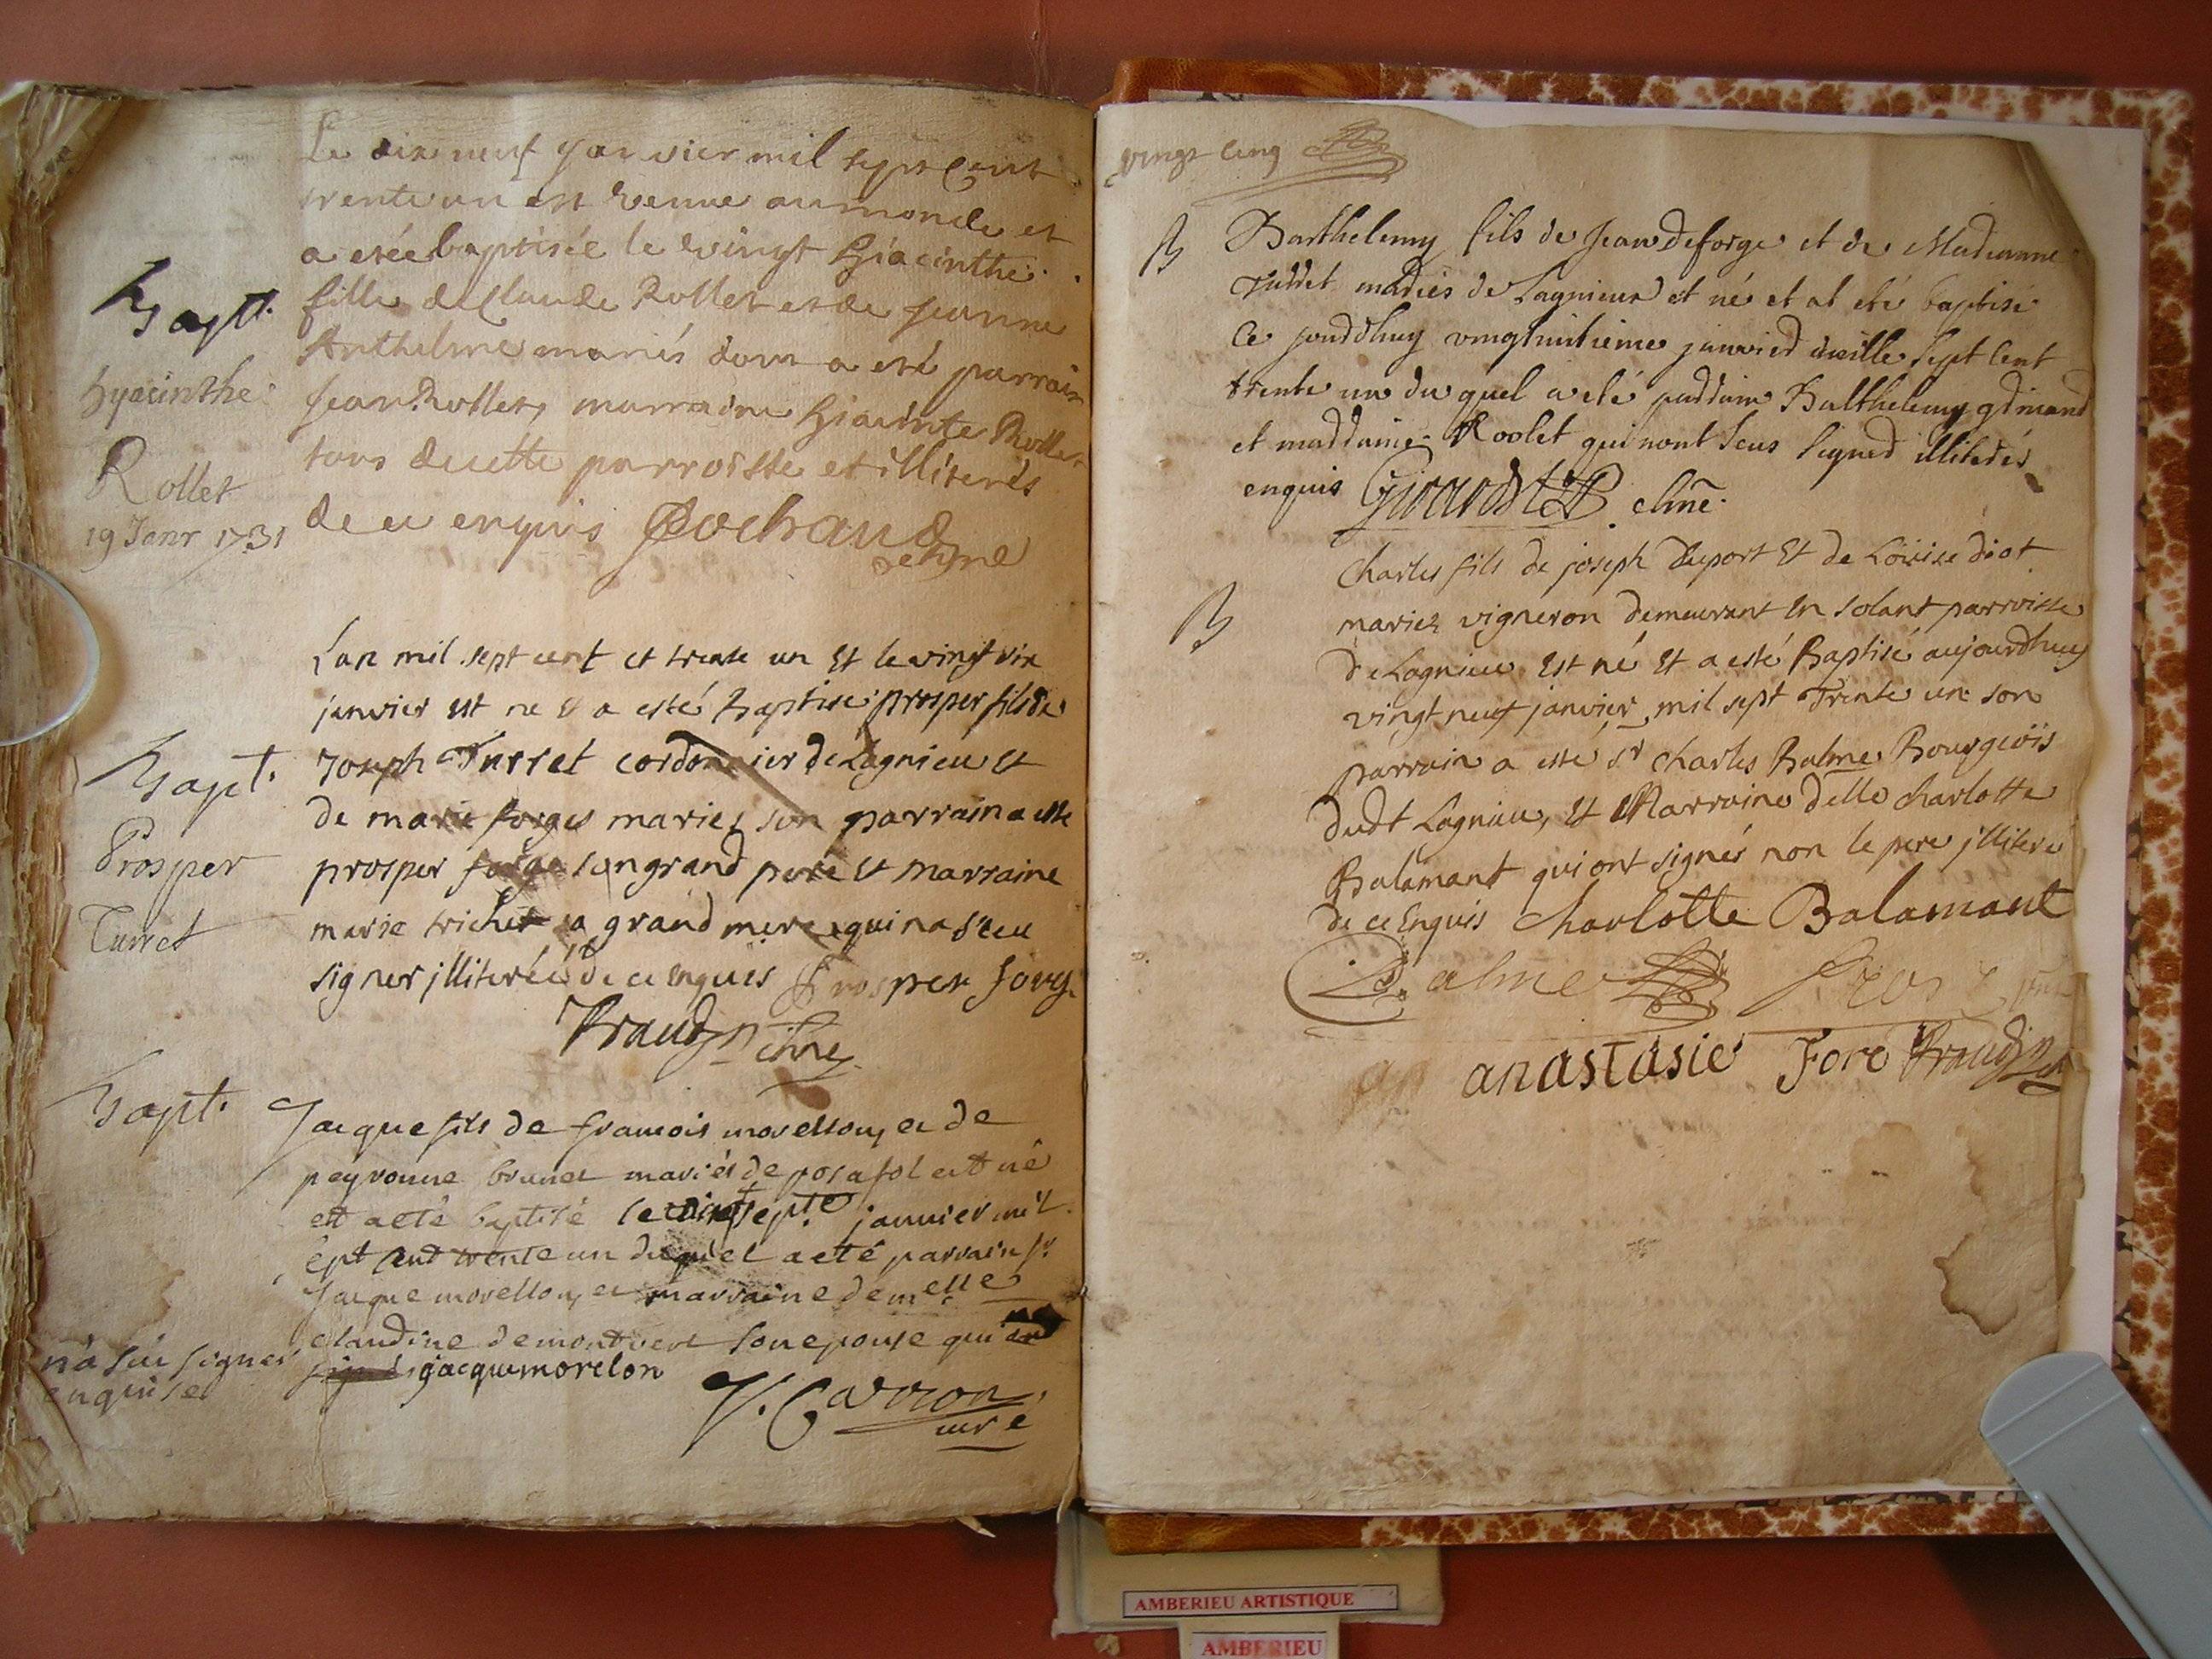 Le dix neuf janvier mil sept Cent
trente un est venue au monde et
a estée baptisée le vingt Hiacinthe
fille de Claude Rollet et de jeanne
Anthelme mariés dont a esté parrain
jean Rollet, marraine hiacinte Rollet
tous de cette parroisse et illiterés
de ce enquis
Bapt.
hyacinthe
Rollet
19 Janr 1731
L'an mil sept cent et trente un Et le vingt six
janvier est ne Et a esté Baptisé prosper fils de
Joseph Turret cordonnier de Lagnieu Et
de marie forges mariez son parrain a esté
prosper forge son grand pere Et Marraine
marie trichet sa grand mere qui na sceu
signer jlliterée de ce Enquis prosper forg
Bapt.
Prosper
Turret
Bapt.
Jacque fils de francois morellon, et de
peyronne brunet mariés de posafol est né
et a eté baptisé le sept.e janvier mil
sept cent trente un duquel a eté parrain Sr
Jacque morellon, et marraine dem.elle
claudine demontvert son epouse qui
n'a sçu signer
enquise
jacque morelon
V. Carron
curé
vingt cinq
B
Barthelemy fils de Jean deforge et de
Turret mariés de Lagnieur et né et at eté baptisé
Ce jourdhuy vingthuitieme janvier mille Sept Cent
trente un du quel a eté parrain Barthelemy
et marraine Roolet qui nont Seus Signer illiterés
enquis Girardet
B
Charles fils de joseph Duport Et de Loüise diot
mariez vigneron demeurant En Solant parroisse
de Lagnieu Est né Et a esté Baptisé aujourdhuy
vingt neuf janvier mil sept Trente un son
parrain a esté Sr Charles Balme Bourgeois
dudt Lagnieu, Et Marraine delle Charlotte
Balamant qui ont signés non le pere jlliteré
de ce Enquis Charlotte Balamant
Balme
anastasie Fore
AMBERIEU ARTISTIQUE
AMBERIEU